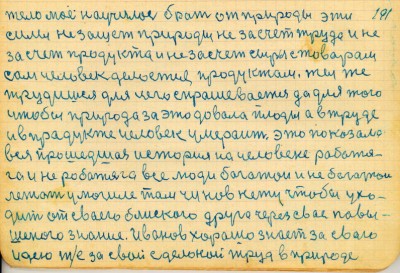 тело моё научилос брат от природы эти 191
сили не защет природы не засчет труда и не
за счет продукта и не засчет сырья товарам
сам человек делается продуктам. Мы же
трудимся для чего спрашевается да для того
чтобы природа за это довала плоды а в труде
и в прадукте человек умераит. Это показала
вся прошедшая история на человеке работя-
га и не работяга все люди богатои и не богатои
лежат у могиле там чинов нету чтобы ухо-
дит от своего близкого друга через свае павы-
шеного знание. Иванов хорашо знает за сваго
идею т/е за свой сделоный труд в природе